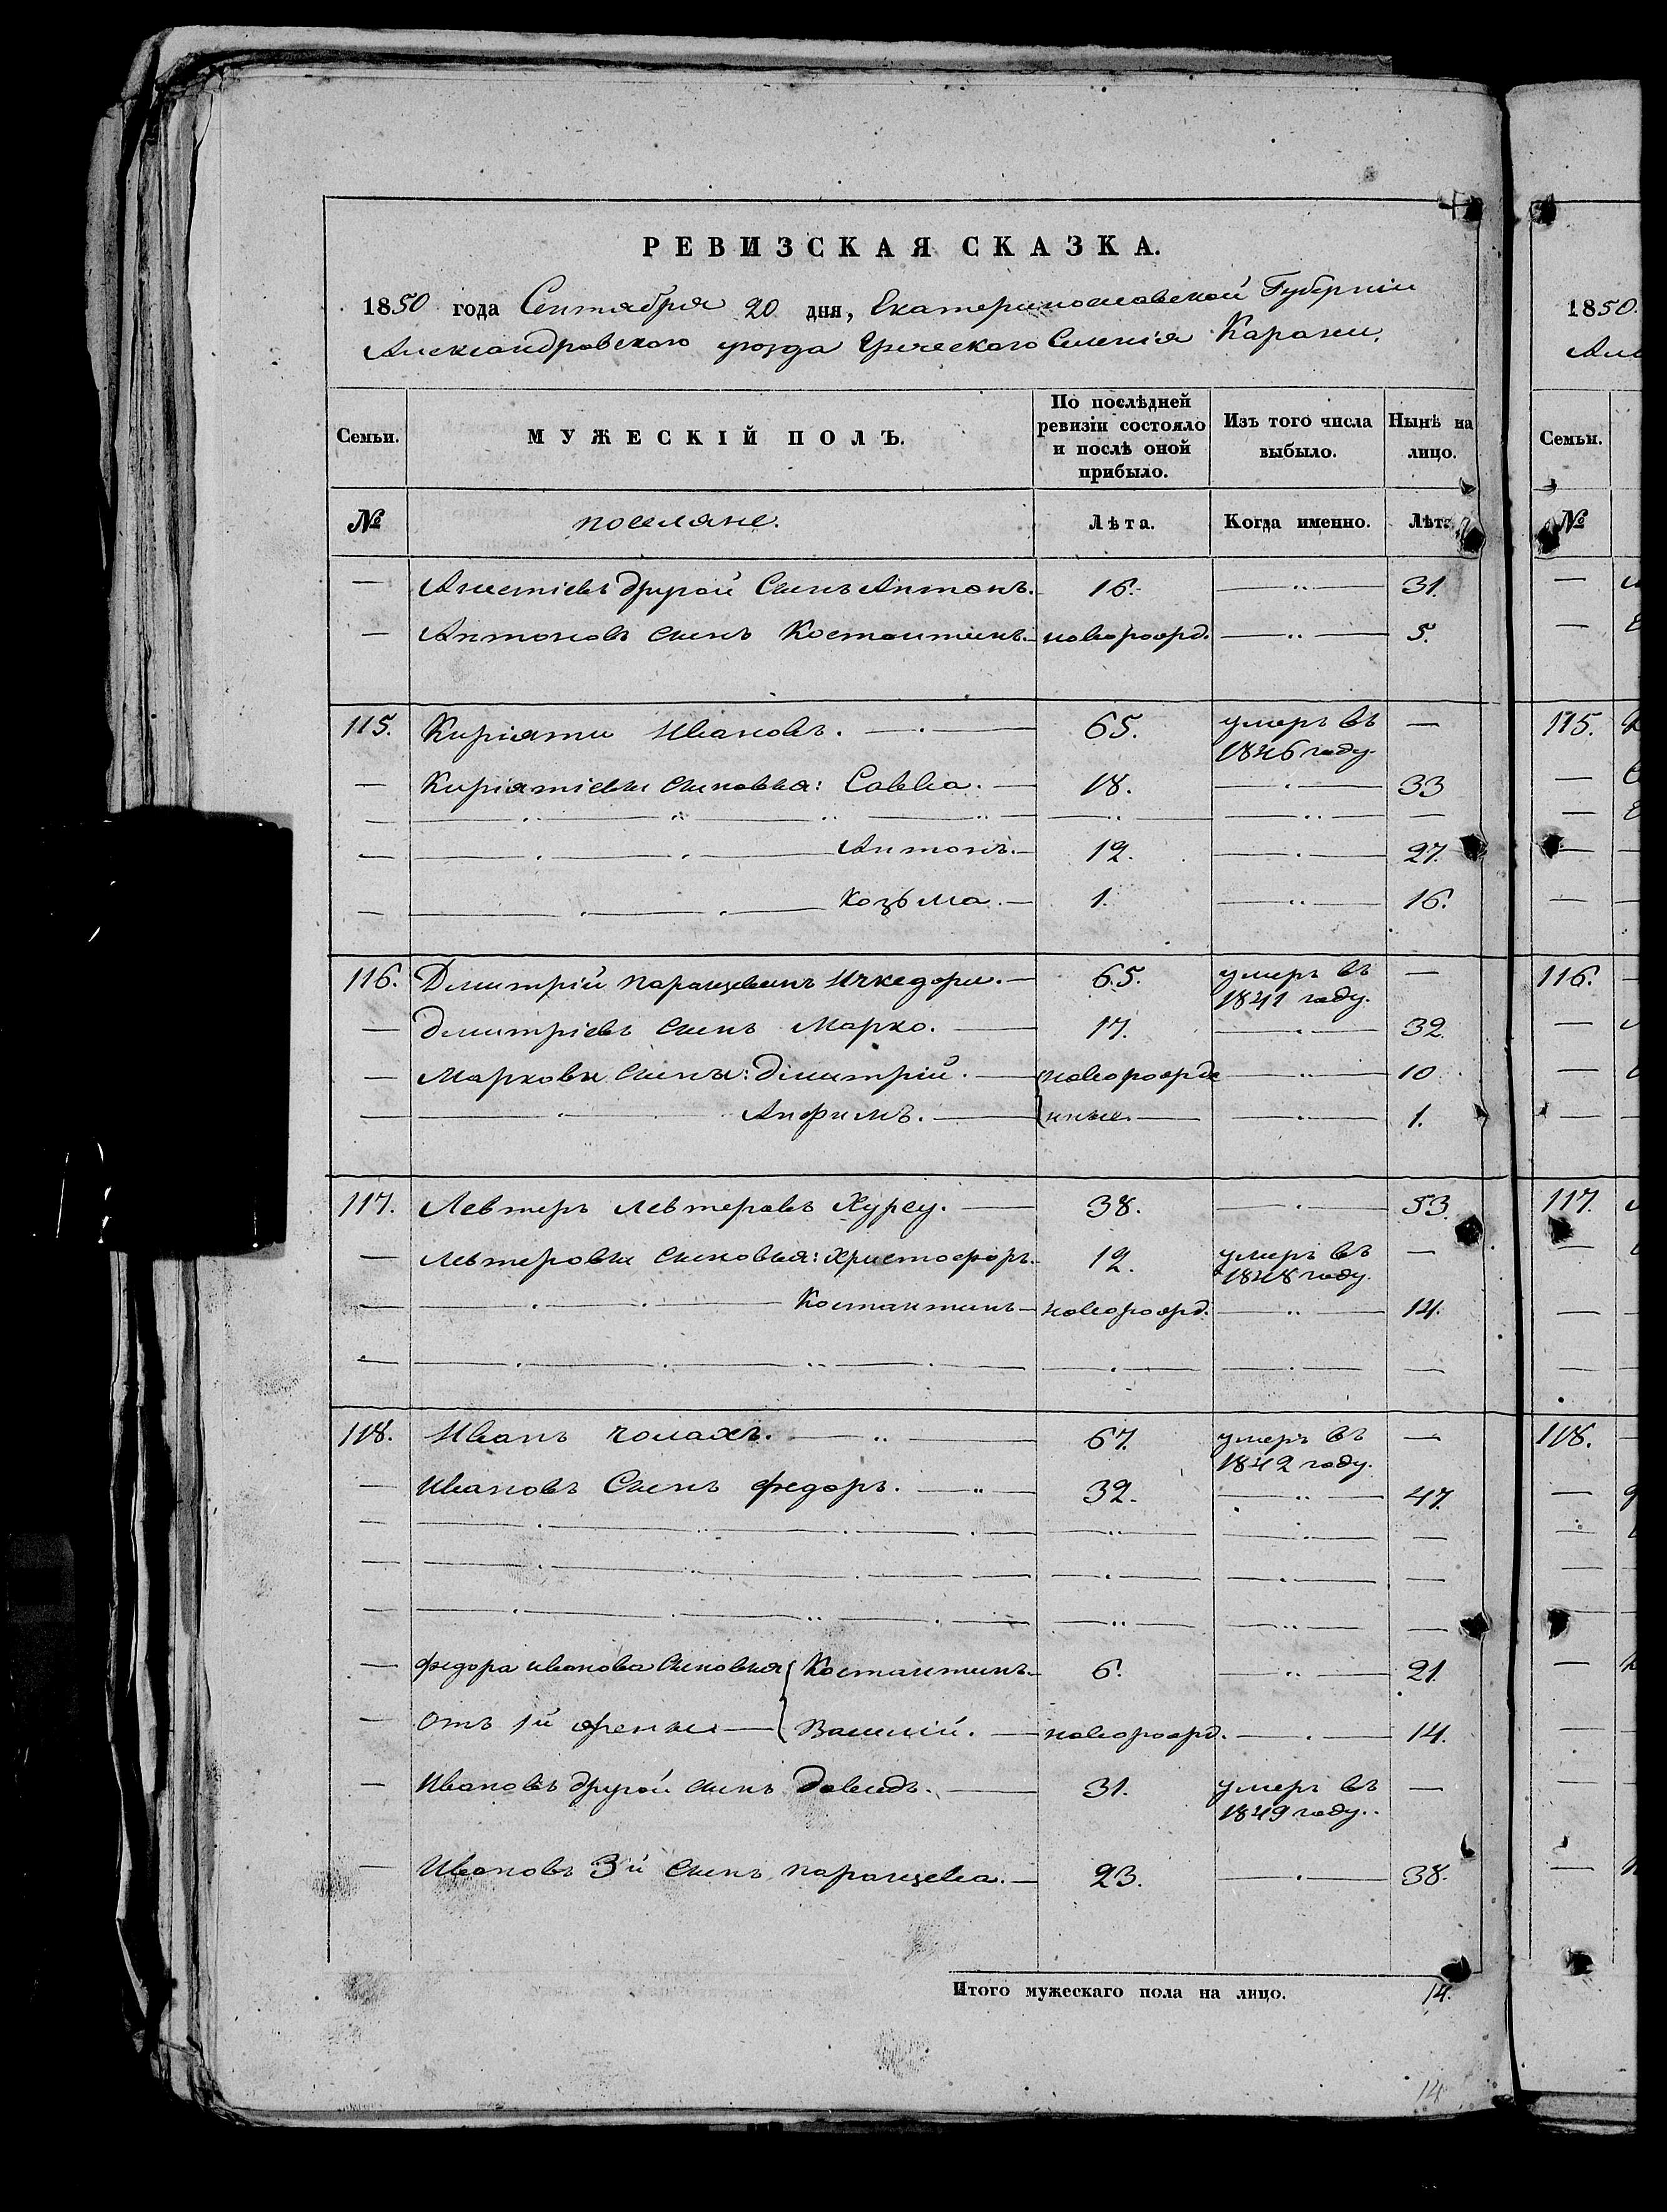 РЕВИЗСКАЯ СКАЗКА.
1850 года Сентября 20 дня, Екатеринославской Губерніи
Александровского уезда Греческого Селенія Карани.
Семьи. МУЖЕСКІЙ ПОЛЪ. По послѣдней ревизіи состояло и послѣ оной прибыло. Изъ того числа выбыло. Нынѣ на лицо.
№ поселяне. Лѣта. Когда именно. Лѣта
— другой Сынъ Антонъ. 16. — 31.
— Антоновъ сынъ Костантинъ. новорожд. — 5.
115. Киріяти Ивановъ. — 65. умеръ въ 1846 году. —
— Киріятіевы сыновья: Савва. — 18. — 33
— Антонъ. — 12. — 27.
— Козьма. — 1. — 16.
116. Дмитрій Паранцевинъ Ичкедори. — 65. умеръ въ 1841 году. —
— Дмитріевъ сынъ Марко. — 17. — 32
— Марковы сыны: Дмитрій. — новорожде — 10
— Анфимъ. — нные. — 1.
117. Левтеръ Левтеровъ Хурсу. — 38. — 53.
— Левтеровы сыновья: Христофоръ. 12. умеръ въ 1848 году. —
— Костантинъ — новорожд. — 14.
118. Иванъ Чолахъ. — 67. умеръ въ 1842 году. —
— Ивановъ Сынъ Федоръ. — 32. — 47.
— Федора Иванова Сыновья Костантинъ. 6. — 21.
— Отъ 1й жены — Василій. — новорожд. — 14.
— Ивановъ другой сынъ Давидъ. — 31. умеръ въ 1849 году. —
— Ивановъ 3й Сынъ Паранцева. — 23. — 38.
Итого мужескаго пола на лицо. 14.
14
1850.
Але
Семьи.
№
115.
116.
117.
118.